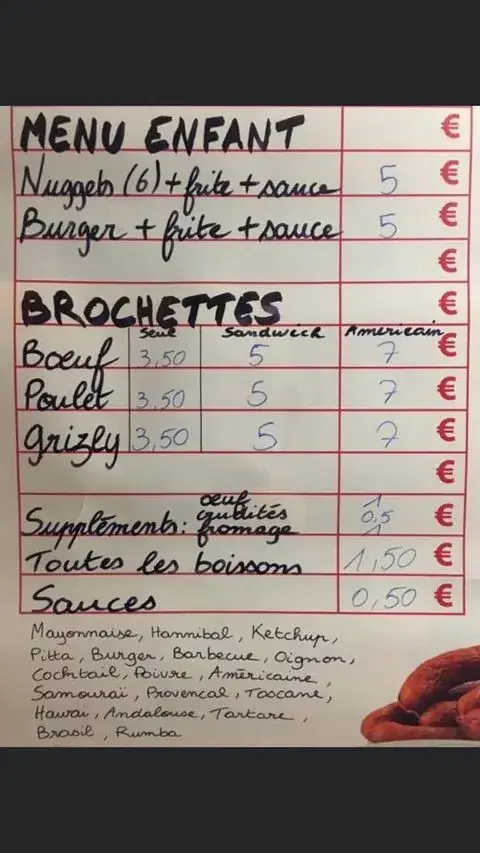 MENU ENFANT €
Nuggets (6) + frite + sauce 5 €
Burger + frite + sauce 5 €
€
BROCHETTES €
Seul Sandwich Americain
Bœuf 3,50 5 7 €
Poulet 3,50 5 7 €
Grizly 3,50 5 7 €
€
œuf 1
Suppléments: crudités 0,5 €
fromage 1
Toutes les boissons 1,50 €
Sauces 0,50 €
Mayonnaise, Hannibal, Ketchup,
Pitta, Burger, Barbecue, Oignon,
Cocktail, Poivre, Américaine,
Samouraï, Provencal, Toscane,
Hawai, Andalouse, Tartare,
Brasil, Rumba